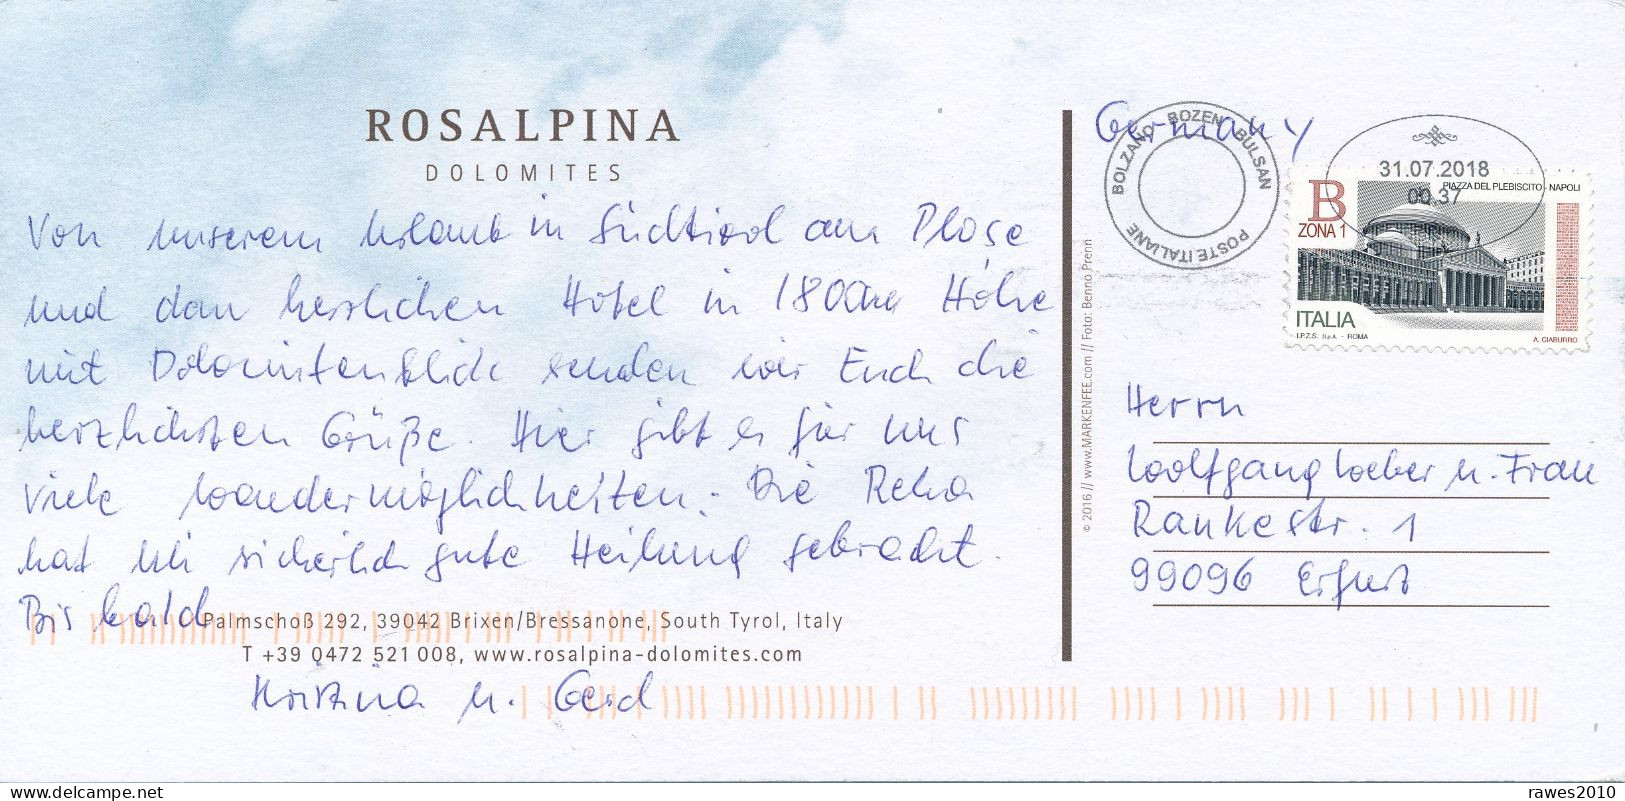 ROSALPINA
DOLOMITES
Von unserem Urlaub in Südtirol am Plose
und dem herrlichen Hotel in 1800m Höhe
mit Dolomitenblick senden wir Euch die
herzlichsten Grüße. Hier gibt es für uns
viele Wandermöglichkeiten. Die Reha
hat Uli sicherlich gute Heilung gebracht.
Bis bald
Palmschoß 292, 39042 Brixen/Bressanone, South Tyrol, Italy
T +39 0472 521 008, www.rosalpina-dolomites.com
Kristina u. Gerd
© 2016 // www.MARKENFEE.com // Foto: Benno Prenn
Germany
BOLZANO - BOZEN - BULSAN
POSTE ITALIANE
31.07.2018
00.37
B
ZONA 1
PIAZZA DEL PLEBISCITO - NAPOLI
ITALIA
I.P.Z.S. S.p.A. - ROMA
A. CIABURRO
Herrn
Wolfgang Weber u. Frau
Rankestr. 1
99096 Erfurt
delcampe.net
rawes2010